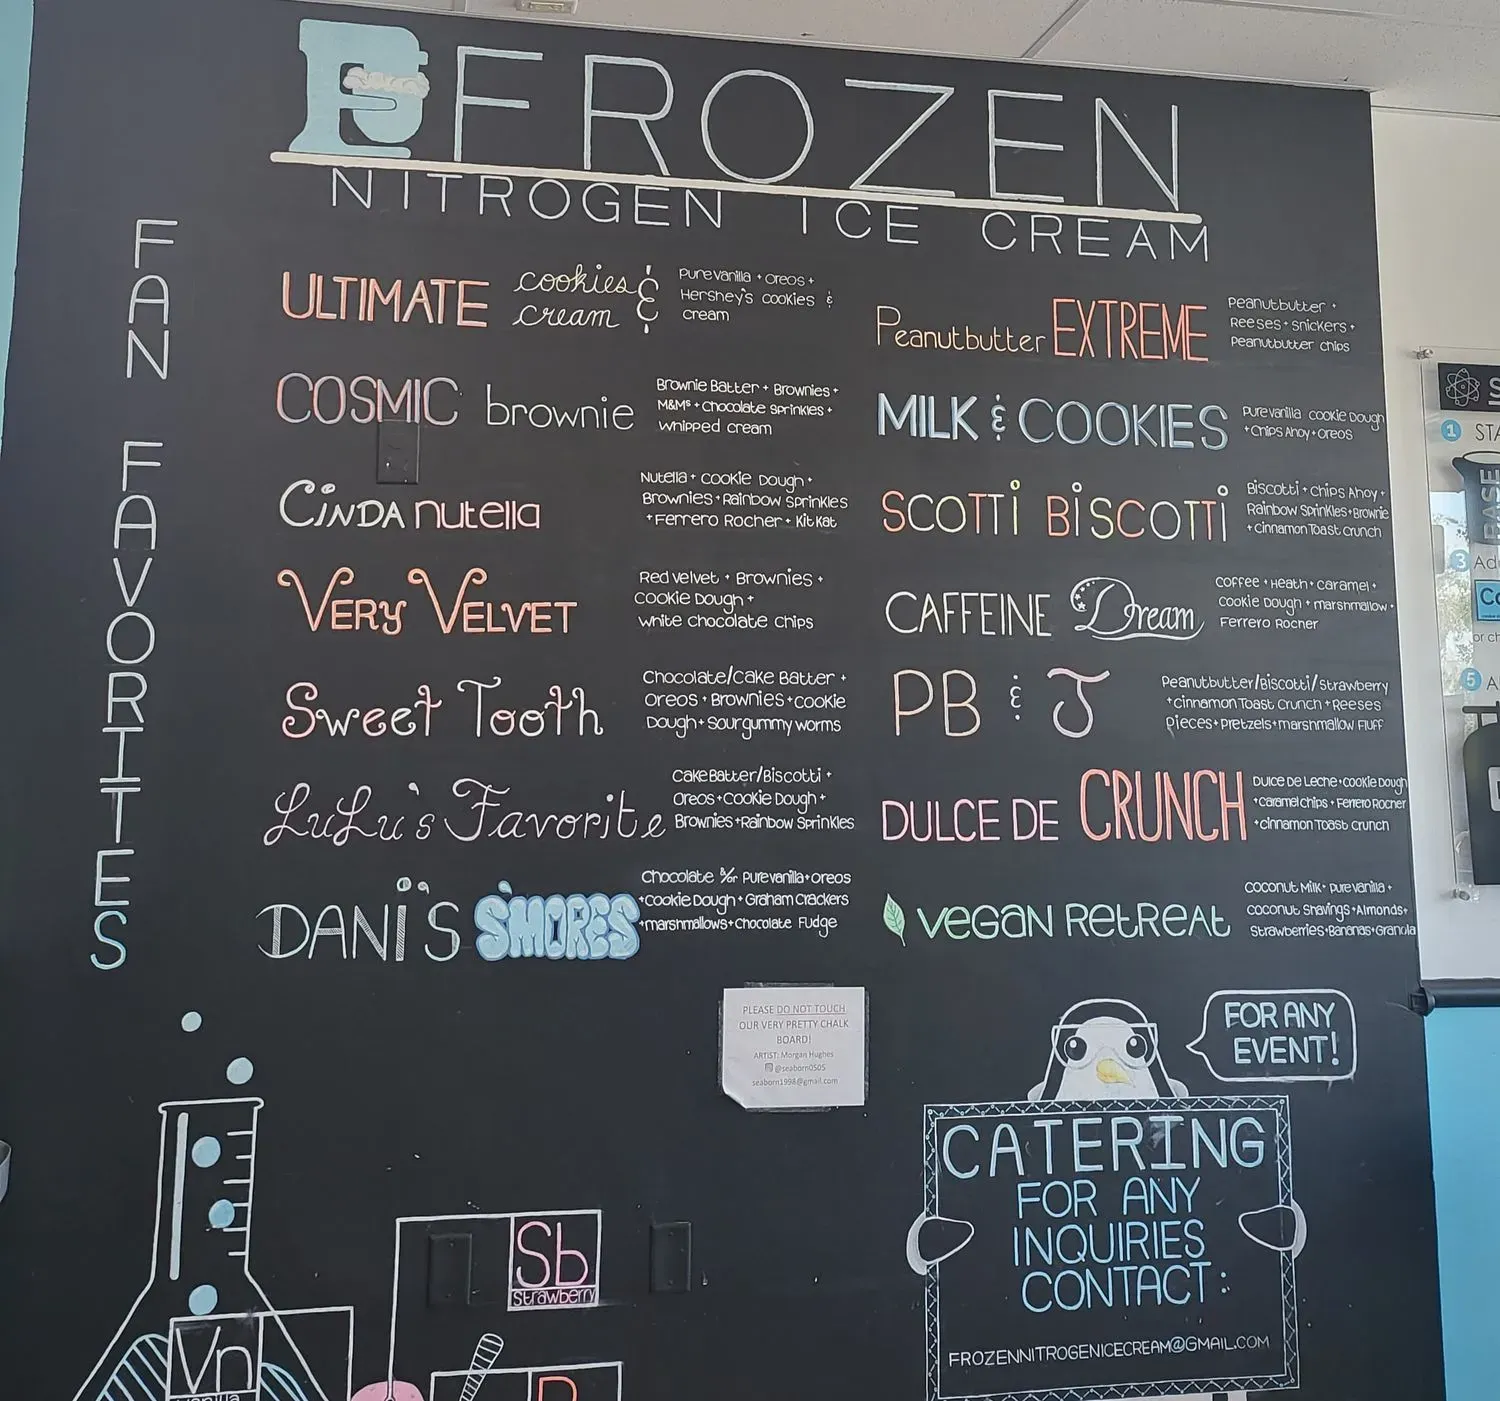 FROZEN
NITROGEN ICE CREAM
FAN FAVORITES
ULTIMATE cookies &
cream
Pure vanilla + Oreos +
Hershey's cookies &
cream
COSMIC brownie
Brownie Batter + Brownies +
M&Ms + Chocolate Sprinkles +
whipped cream
CINDA nutella
Nutella + Cookie Dough +
Brownies + Rainbow Sprinkles
+ Ferrero Rocher + KitKat
VERY VELVET
Red Velvet + Brownies +
Cookie Dough +
white chocolate chips
Sweet Tooth
Chocolate/Cake Batter +
Oreos + Brownies + Cookie
Dough + Sour gummy worms
LuLu's Favorite
Cake Batter/Biscotti +
Oreos + Cookie Dough +
Brownies + Rainbow Sprinkles
DANI'S S'MORES
Chocolate &/or Pure vanilla + Oreos
+ Cookie Dough + Graham Crackers
+ marshmallows + Chocolate Fudge
Peanutbutter EXTREME
Peanutbutter +
Reeses + Snickers +
Peanutbutter chips
MILK & COOKIES
Pure vanilla cookie Dough
+ Chips Ahoy + Oreos
SCOTTI BISCOTTI
Biscotti + Chips Ahoy +
Rainbow Sprinkles + Brownie
+ Cinnamon Toast Crunch
CAFFEINE Dream
Coffee + Heath + caramel +
Cookie Dough + marshmallow +
Ferrero Rocher
PB & J
Peanutbutter/Biscotti/Strawberry
+ Cinnamon Toast Crunch + Reeses
Pieces + Pretzels + marshmallow Fluff
DULCE DE CRUNCH
Dulce De Leche + Cookie Dough
+ caramel chips + Ferrero Rocher
+ Cinnamon Toast Crunch
VEGAN RETREAT
Coconut Milk + Pure vanilla +
Coconut Shavings + Almonds +
Strawberries + Bananas + Granola
PLEASE DO NOT TOUCH
OUR VERY PRETTY CHALK
BOARD!
ARTIST: Morgan Hughes
@seaborn0505
seaborn1998@gmail.com
FOR ANY
EVENT!
CATERING
FOR ANY
INQUIRIES
CONTACT:
FROZENNITROGENICECREAM@GMAIL.COM
Sb
Strawberry
Vn
vanilla
1
STA
BASE
3 Ad
Co
or ch
5 A